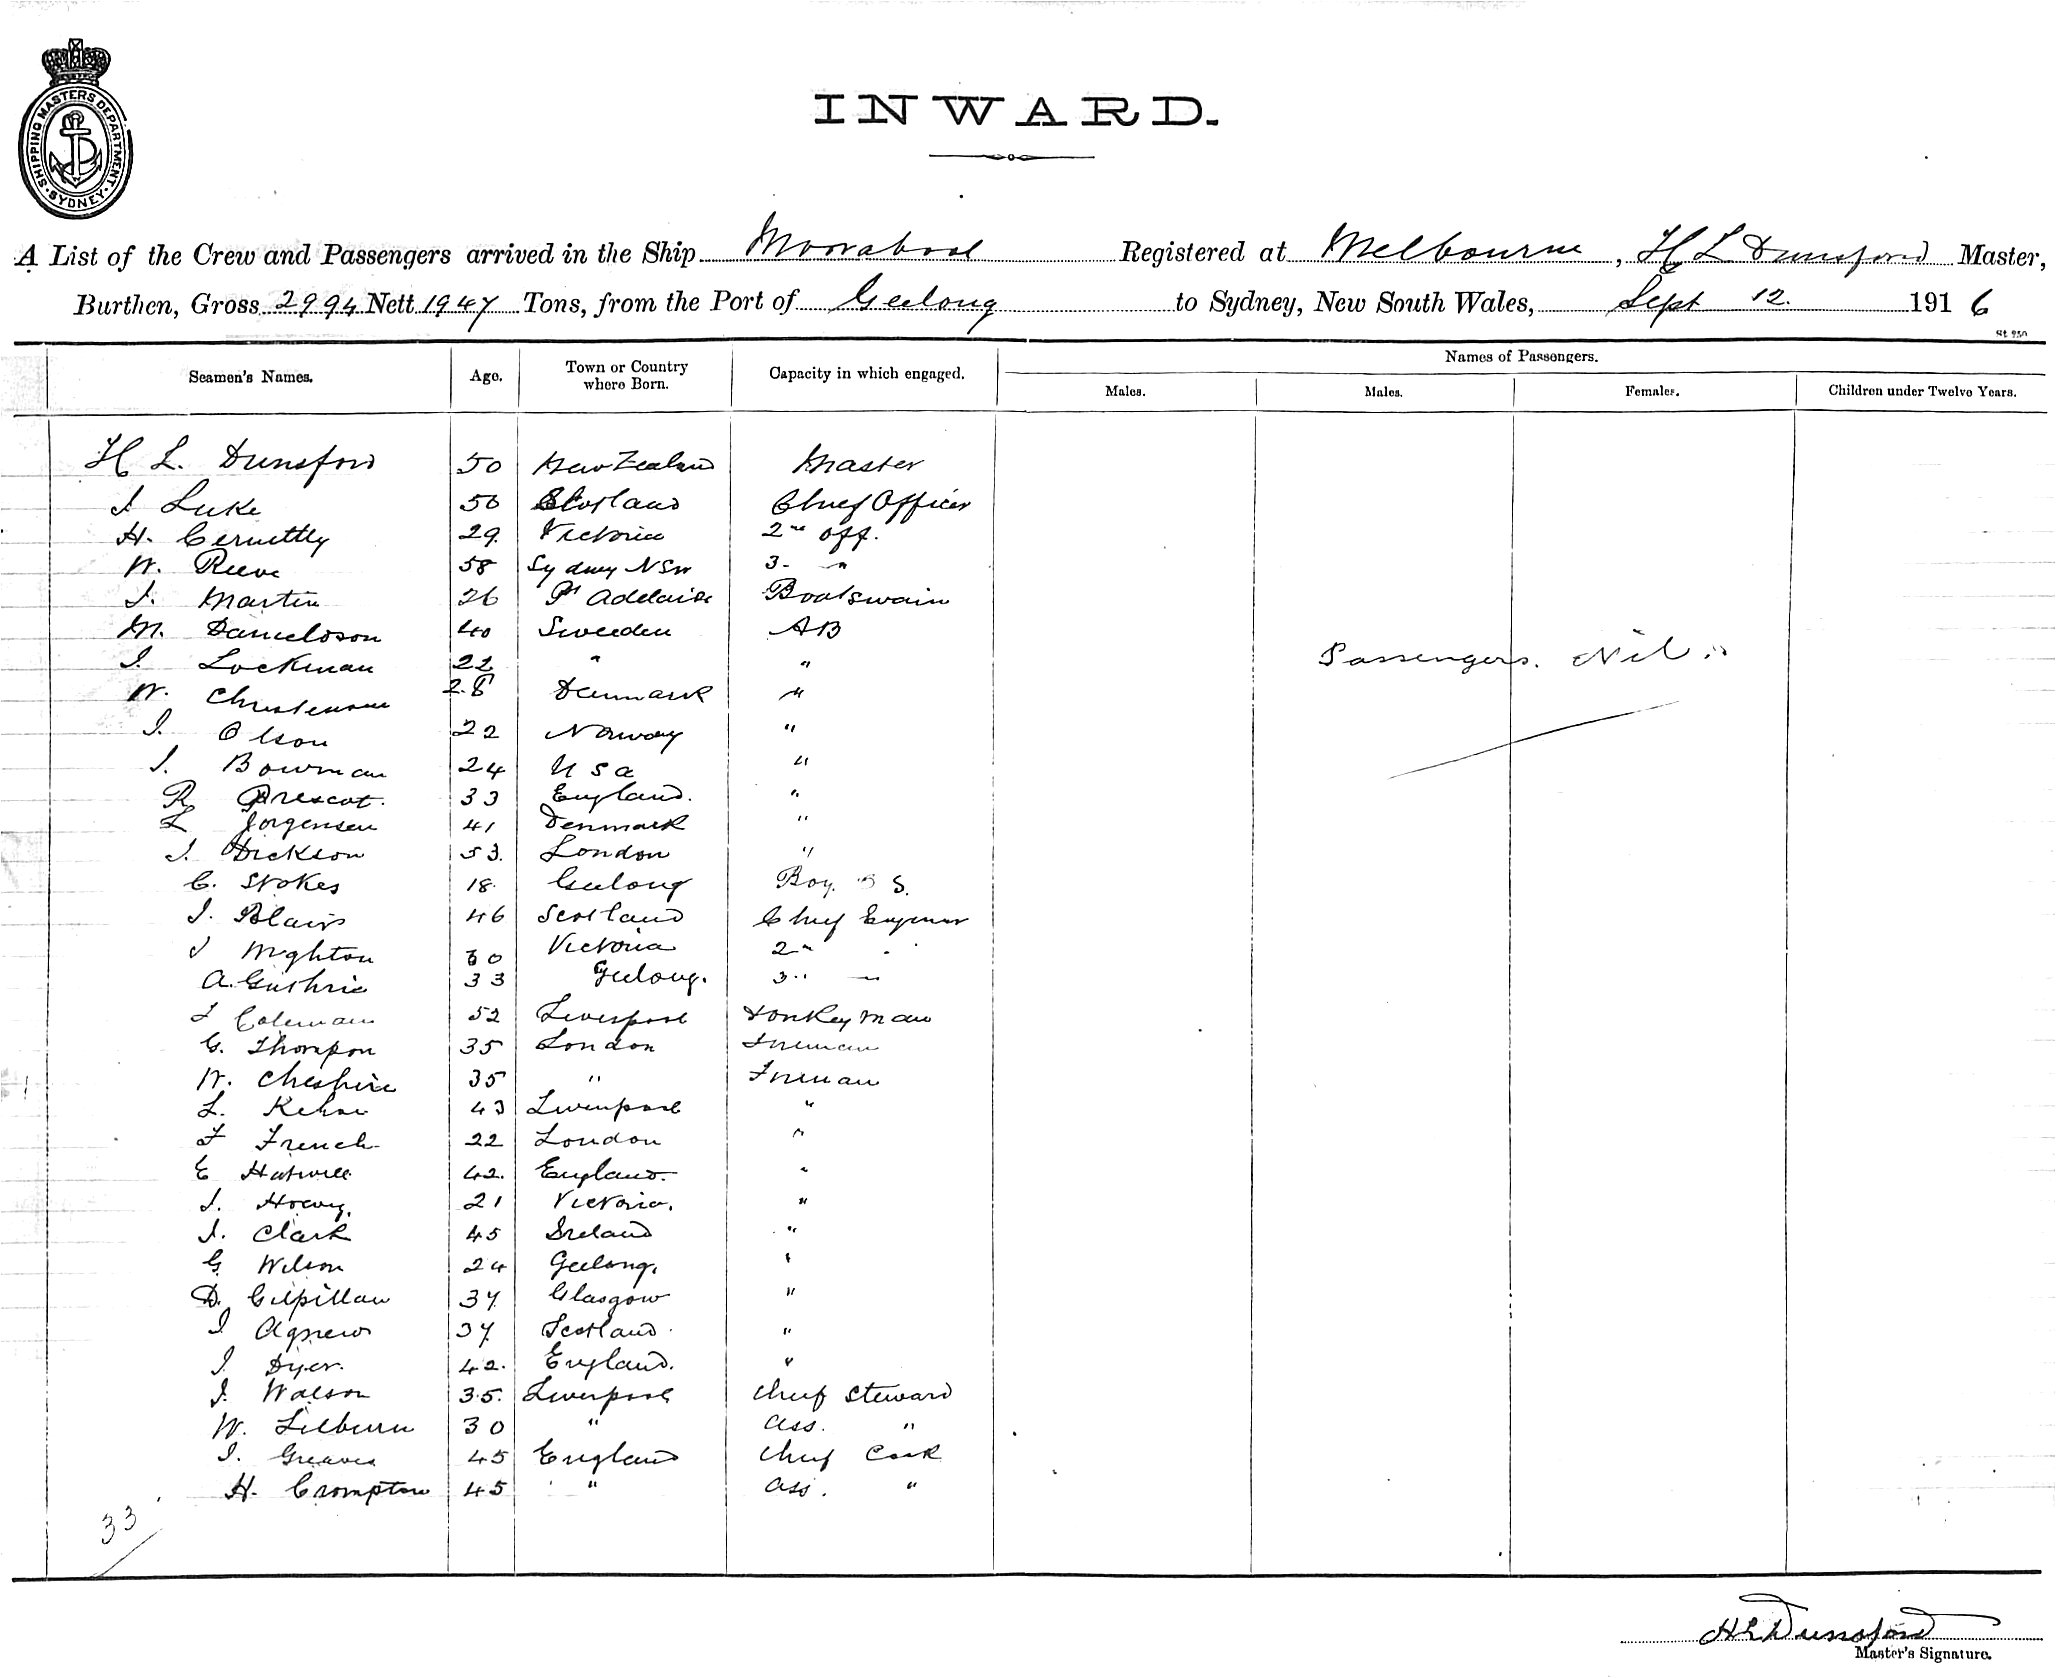 SHIPPING MASTERS DEPARTMENT · SYDNEY ·
INWARD.
A List of the Crew and Passengers arrived in the Ship Moorabool Registered at Melbourne, H L Dunsford Master,
Burthen, Gross 2994 Nett 1947 Tons, from the Port of Geelong to Sydney, New South Wales, Sept 12. 1916
St 250
Names of Passengers.
Seamen's Names. Age. Town or Country where Born. Capacity in which engaged. Males. Males. Females. Children under Twelve Years.
H L. Dunsford 50 New Zealand Master
J Luke 50 Scotland Chief Officer
H. 29. Victoria 2nd Off.
W. Reeve 58 Sydney NSW 3- "
J. Martin 26 Pt Adelaide Boatswain
M. Danieldson 40 Sweeden AB
J. Lockman 22 " "
W. Christensen 28 Denmark "
J. Olson 22 Norway "
J. Bowman 24 U S a "
R Prescot. 33 England. "
L Jorgensen 41 Denmark "
J. Dickson 53. London "
C. Stokes 18. Geelong Boy. S.
J. Blair 46 Scotland Chief Engineer
J Wighton 30 Victoria 2" "
A. Guthrie 33 Geelong. 3" "
J Coleman 52 Liverpool Donkeyman
G. Thompon 35 London Fireman
W. Cheshire 35 " Fireman
L. Kehoe 43 Liverpool "
F French 22 London "
E 42. England. "
J. 21 Victoria. "
J. Clark 45 Ireland "
G Wilson 24 Geelong. "
D. Gilpillan 37 Glasgow "
J Agnew 37 Scotland. "
J. Dyer. 42. England. "
J. Watson 35. Liverpool Chief Steward
W. Lilburn 30 " Ass. "
J. Greaves 45 England Chief Cook
H. Crompton 45 " Ass. "
Passengers. Nil.
33
H L Dunsford
Master's Signature.